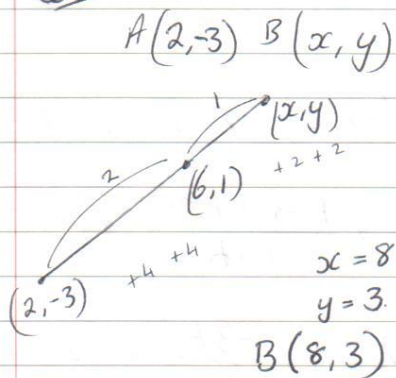 A(2,-3) B(x, y)
1
(x,y)
2
(6,1)
+2 +2
+4 +4
(2,-3)
x = 8
y = 3.
B(8,3)